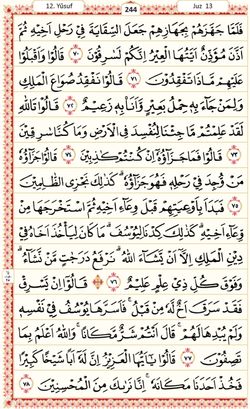 12. Yûsuf
244
Juz 13
فَلَمَّا جَهَّزَهُمْ بِجَهَازِهِمْ جَعَلَ السِّقَايَةَ فِي رَحْلِ اَخِيهِ ثُمَّ
اَذَّنَ مُؤَذِّنٌ اَيَّتُهَا الْعِيرُ اِنَّكُمْ لَسَارِقُونَ ﴿٧٠﴾ قَالُوا وَاَقْبَلُوا
عَلَيْهِمْ مَاذَا تَفْقِدُونَ ﴿٧١﴾ قَالُوا نَفْقِدُ صُوَاعَ الْمَلِكِ
وَلِمَنْ جَٓاءَ بِهِ حِمْلُ بَعِيرٍ وَاَنَا بِهِ زَعِيمٌ ﴿٧٢﴾ قَالُوا تَاللّٰهِ
لَقَدْ عَلِمْتُمْ مَا جِئْنَا لِنُفْسِدَ فِي الْاَرْضِ وَمَا كُنَّا سَارِقِينَ
﴿٧٣﴾ قَالُوا فَمَا جَزَٓاؤُهُٓ اِنْ كُنْتُمْ كَاذِبِينَ ﴿٧٤﴾ قَالُوا جَزَٓاؤُهُ
مَنْ وُجِدَ فِي رَحْلِهِ فَهُوَ جَزَٓاؤُهُ كَذٰلِكَ نَجْزِي الظَّالِمِينَ
﴿٧٥﴾ فَبَدَاَ بِاَوْعِيَتِهِمْ قَبْلَ وِعَٓاءِ اَخِيهِ ثُمَّ اسْتَخْرَجَهَا مِنْ
وِعَٓاءِ اَخِيهِ كَذٰلِكَ كِدْنَا لِيُوسُفَ مَا كَانَ لِيَأْخُذَ اَخَاهُ فِي
دِينِ الْمَلِكِ اِلَّٓا اَنْ يَشَٓاءَ اللّٰهُ نَرْفَعُ دَرَجَاتٍ مَنْ نَشَٓاءُ
وَفَوْقَ كُلِّ ذِي عِلْمٍ عَلِيمٌ ﴿٧٦﴾ قَالُٓوا اِنْ يَسْرِقْ
فَقَدْ سَرَقَ اَخٌ لَهُ مِنْ قَبْلُ فَاَسَرَّهَا يُوسُفُ فِي نَفْسِهِ
وَلَمْ يُبْدِهَا لَهُمْ قَالَ اَنْتُمْ شَرٌّ مَكَانًا وَاللّٰهُ اَعْلَمُ بِمَا
تَصِفُونَ ﴿٧٧﴾ قَالُوا يَٓا اَيُّهَا الْعَزِيزُ اِنَّ لَهُٓ اَبًا شَيْخًا كَبِيرًا
فَخُذْ اَحَدَنَا مَكَانَهُ اِنَّا نَرٰيكَ مِنَ الْمُحْسِنِينَ ﴿٧٨﴾